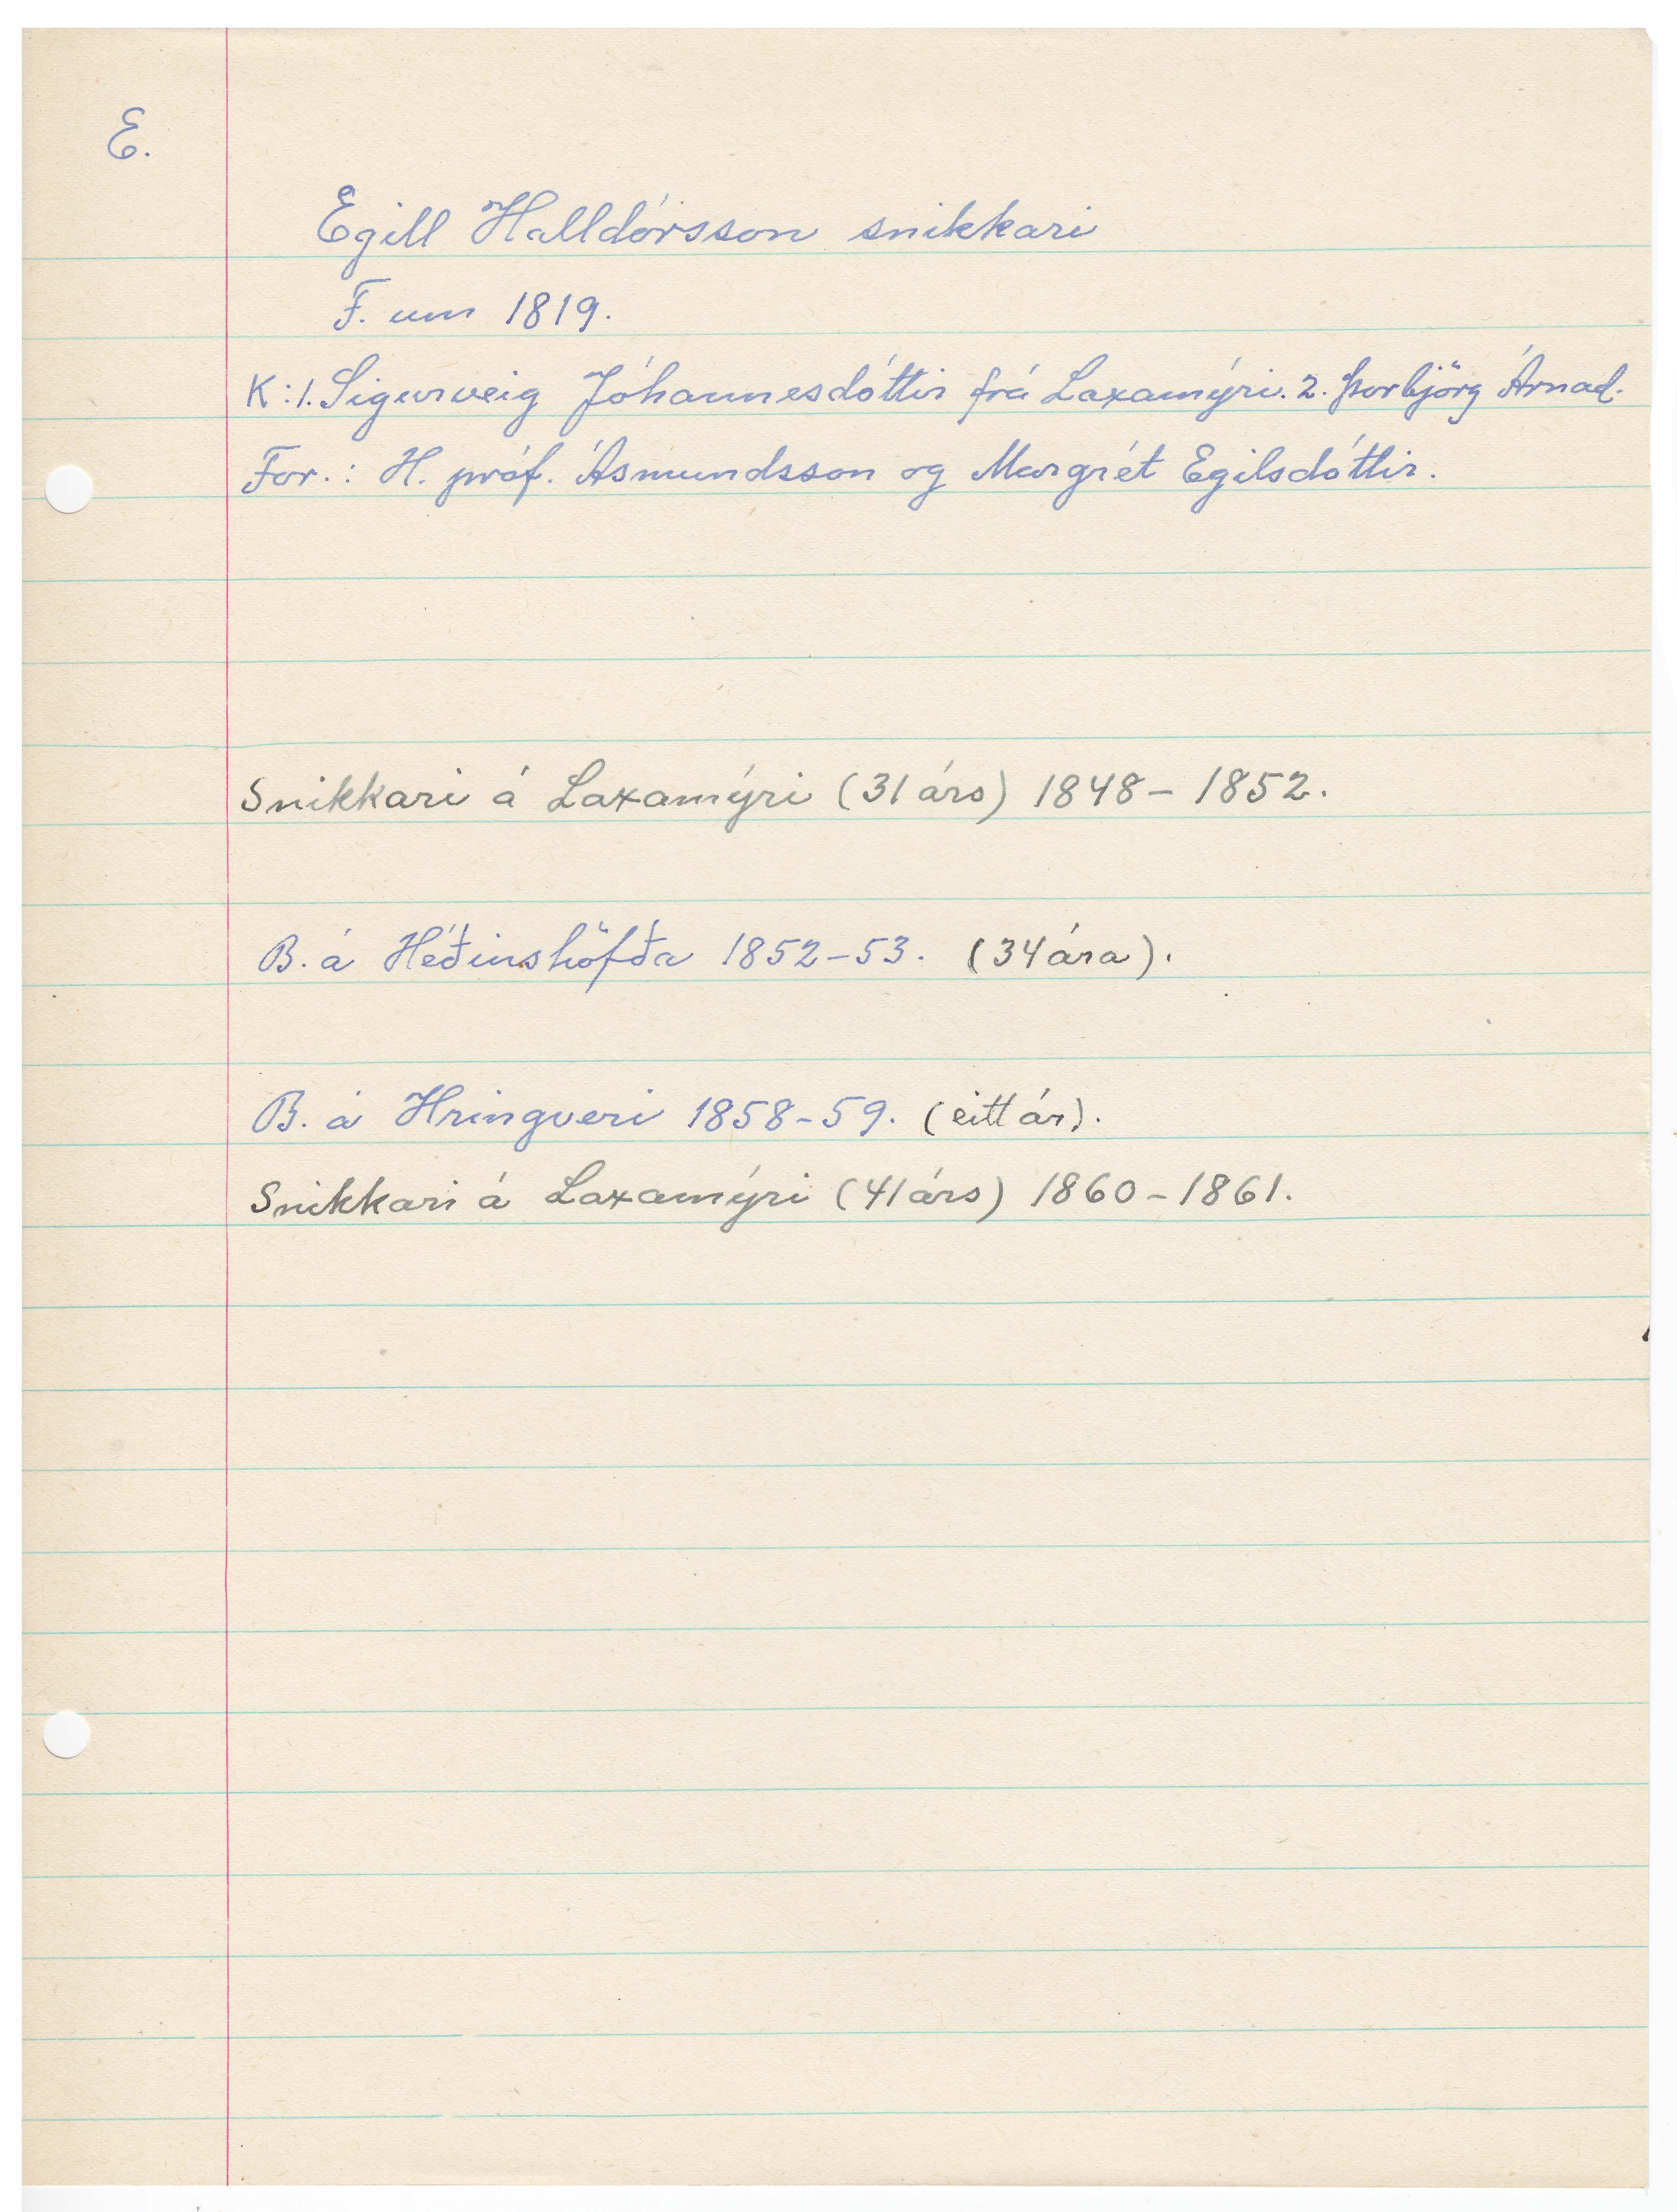 E.
Egill Halldórsson snikkari
F. um 1819.
K:1. Sigurveig Jóhannesdóttir frá Laxamýri. 2. Þorbjörg Árnad.
For.: H. próf. Ásmundsson og Margrét Egilsdóttir.
Snikkari á Laxamýri (31 árs) 1848 - 1852.
B. á Héðinshöfða 1852-53. (34 ára).
B. á Hringveri 1858-59. (eitt ár).
Snikkari á Laxamýri (41 árs) 1860-1861.